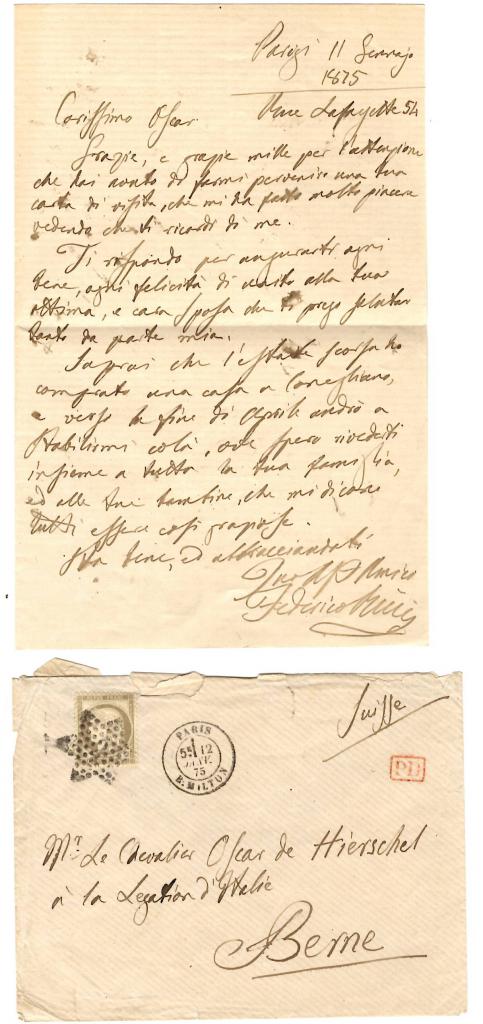 Parigi 11 Gennajo
1875
Rue Lafayette 54
Carissimo Oscar
Grazie, e grazie mille per l'attenzione
che hai avuto di farmi pervenire una tua
carta di visita, che mi ha fatto molto piacere
vedendo che ti ricordi di me.
Ti rispondo per augurarti ogni
bene, ogni felicità di unito alla tua
ottima, e cara sposa che ti prego salutar
tanto da parte mia.
Saprai che l'estate scorsa ho
comprato una casa a Conegliano,
e verso la fine di Aprile andrò a
stabilirmi colà, ove spero rivederti
insieme a tutta la tua famiglia,
ed alle tue bambine, che mi dicono
tutti essere così graziose.
Sta bene, ed abbracciandoti
Tuo Amico
Federico
PARIS
5E 12
JANV.
75
R. MILTON
Suisse
PD
Mr. Le Chevalier Oscar de Hierschel
à la Legation d'Italie
Berne